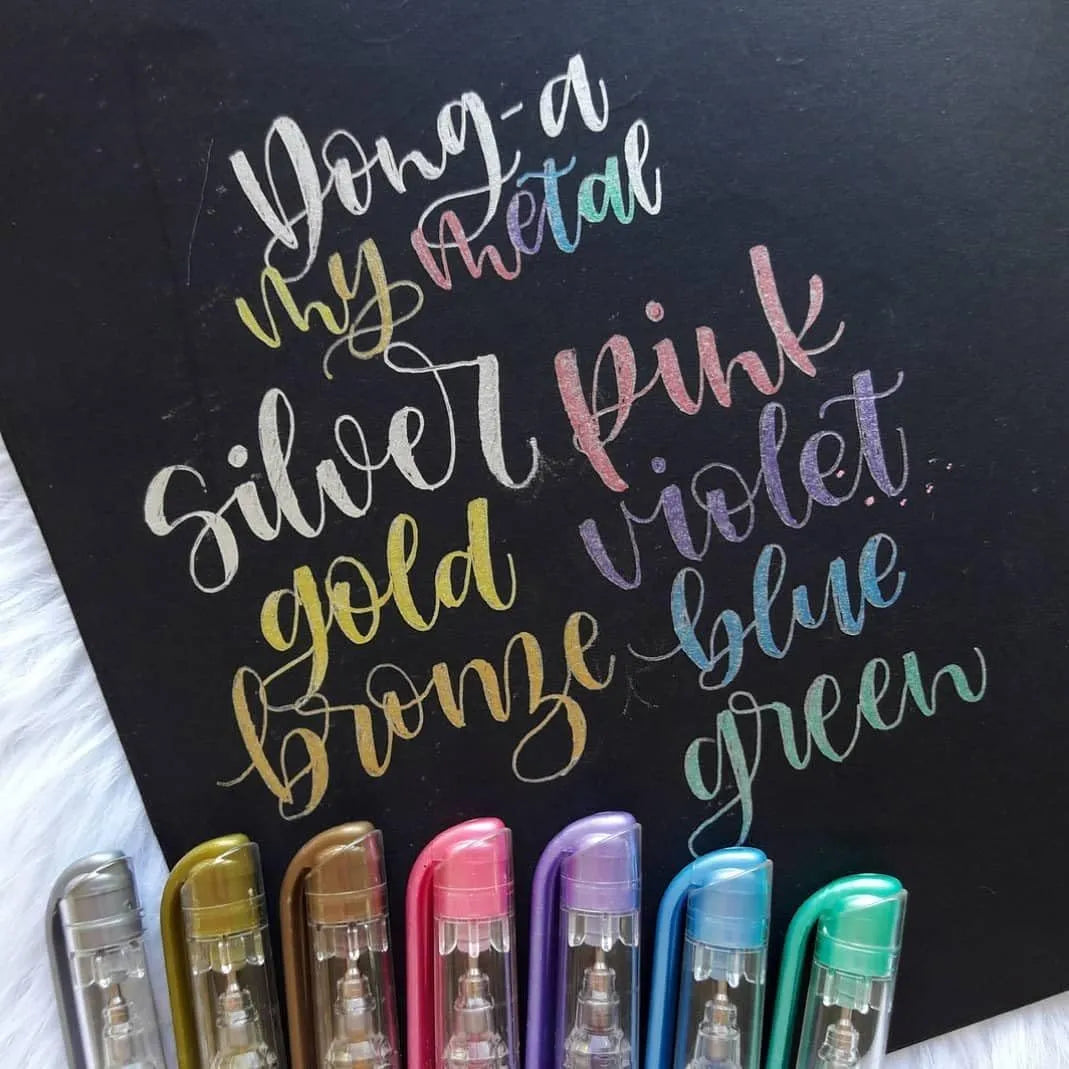 Dong-a
my metal
silver
gold
bronze
pink
violet
blue
green